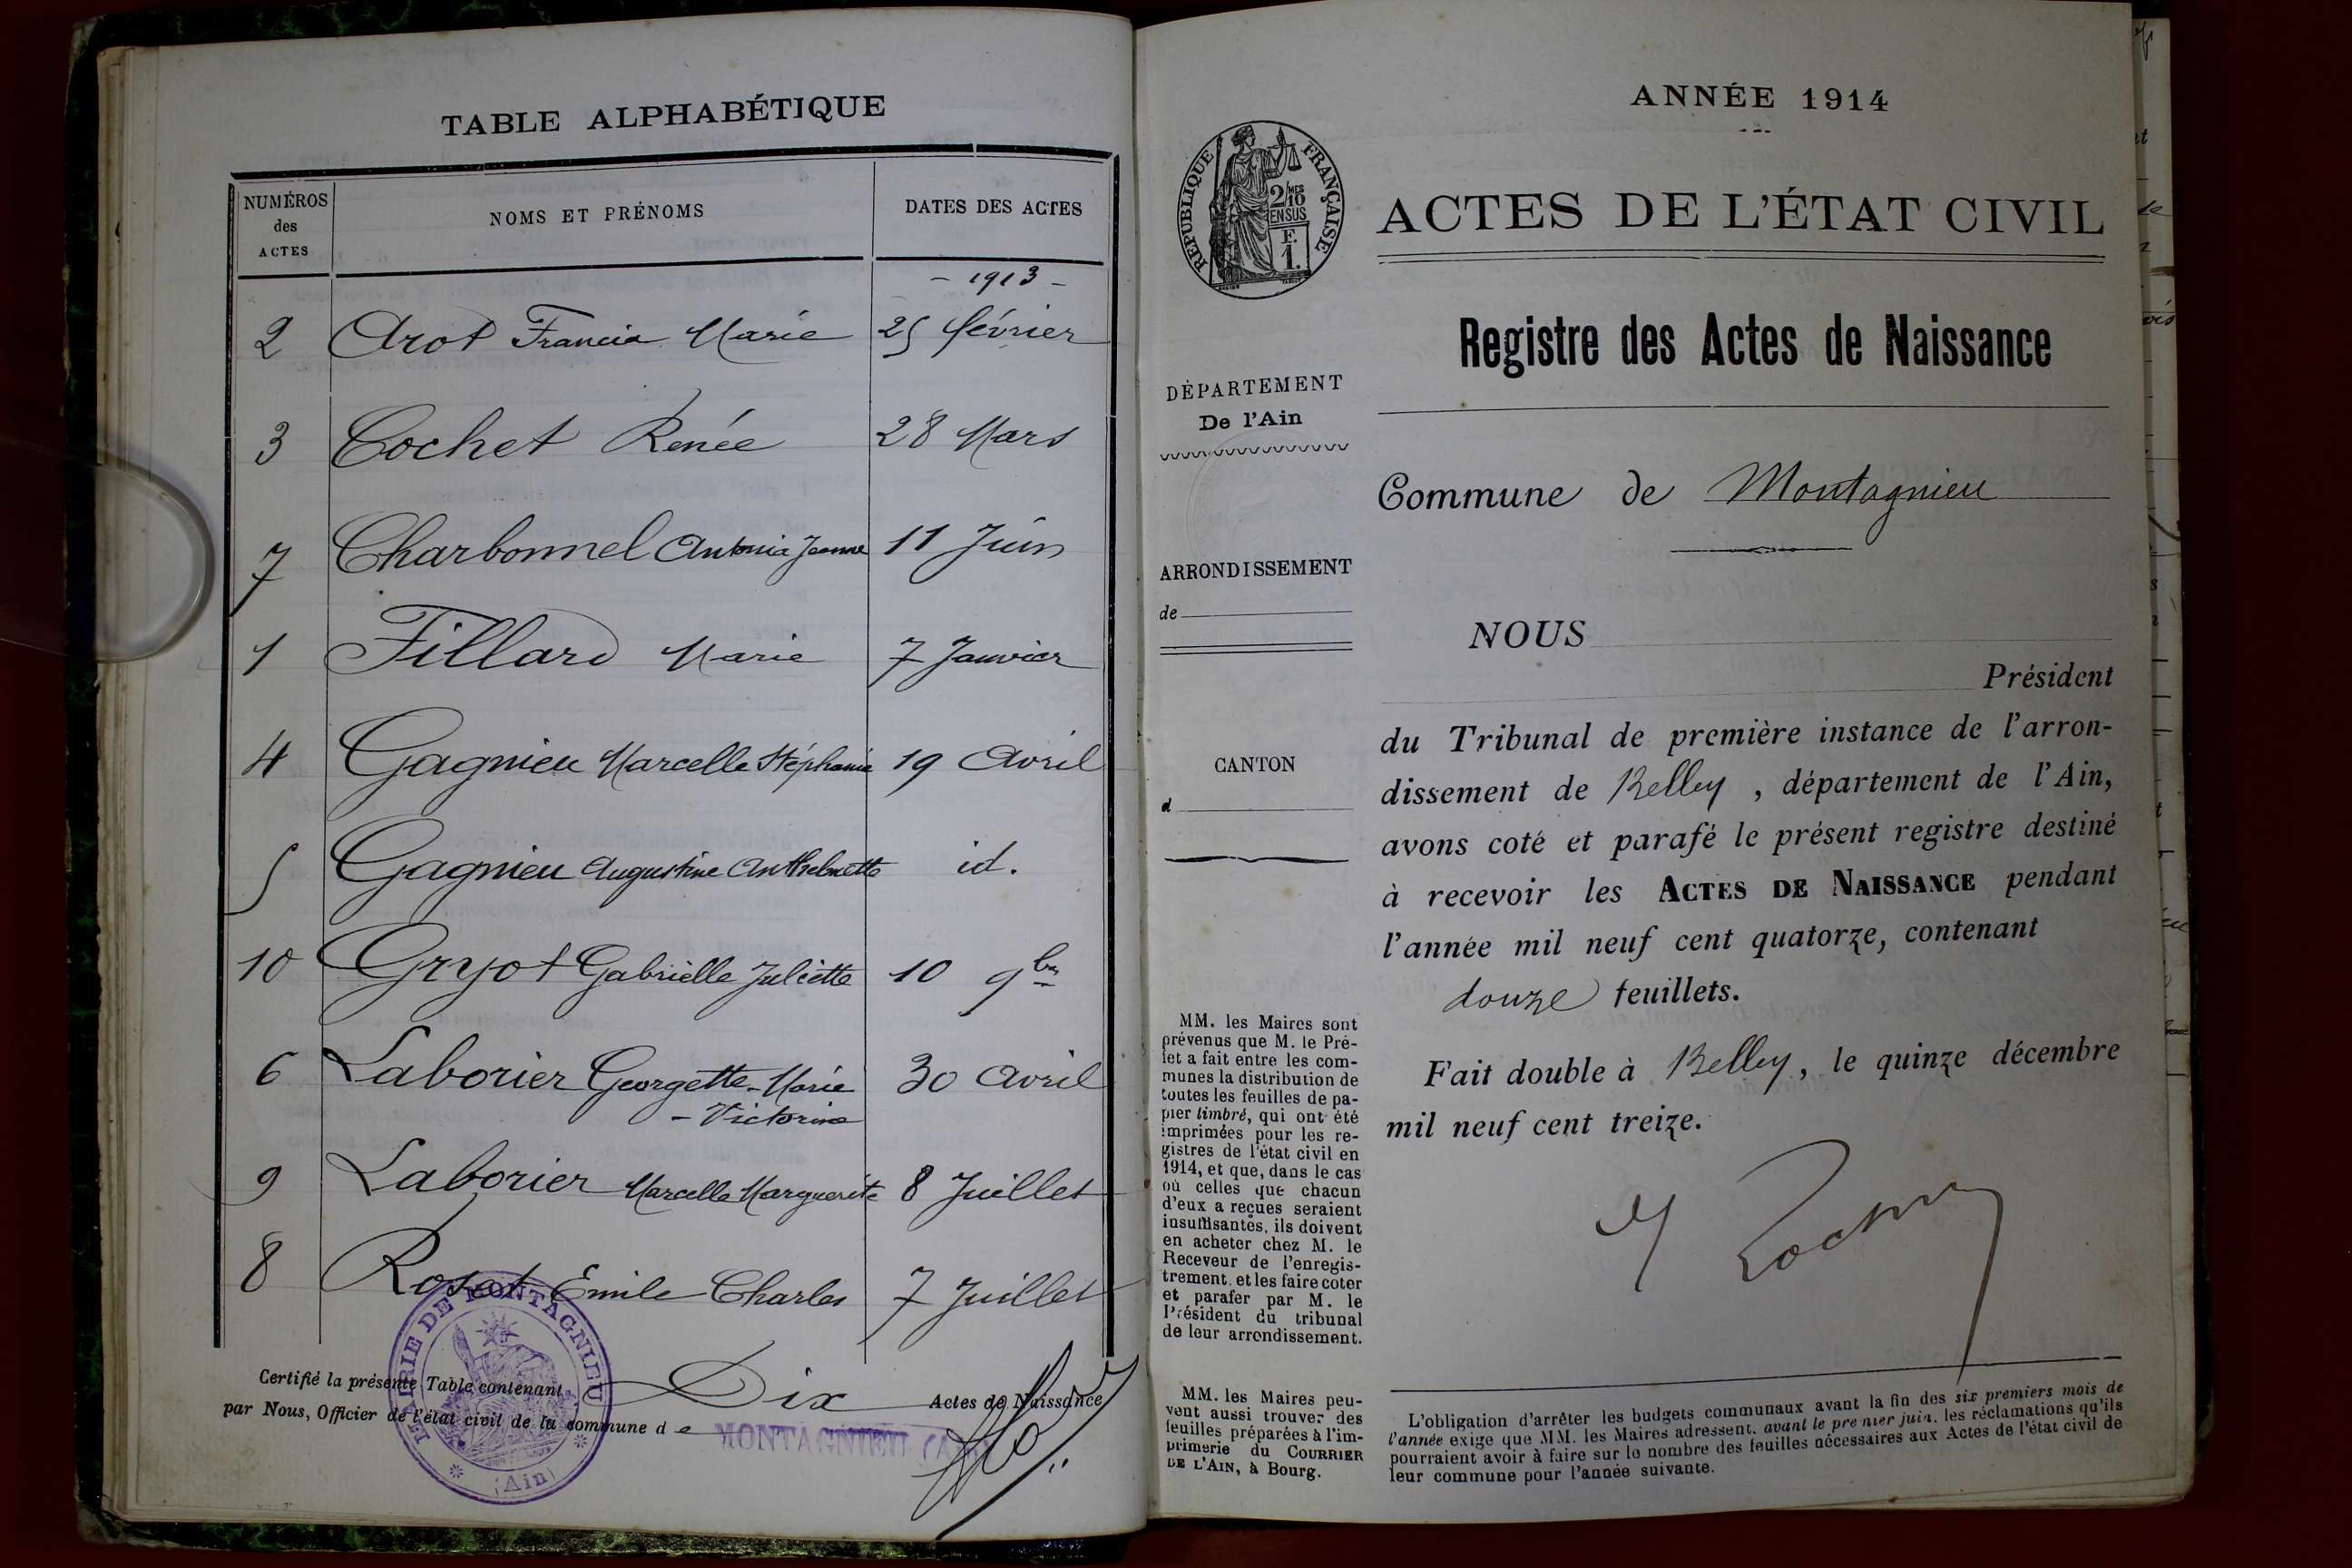 TABLE ALPHABÉTIQUE
NUMÉROS
des
ACTES
NOMS ET PRÉNOMS
DATES DES ACTES
- 1913 -
2 Arot Francia Marie 25 février
3 Cochet Renée 28 Mars
7 Charbonnel Antonia Jeanne 11 Juin
1 Fillard Marie 7 Janvier
4 Gagnieu Marcelle Stéphanie 19 Avril
5 Gagnieu Augustine Anthelmette id.
10 Gryot Gabrielle Juliette 10 9bre
6 Laborier Georgette-Marie 30 Avril
- Victorine
9 Laborier Marcelle Marguerite 8 Juillet
8 Roset Emile Charles 7 Juillet
Certifié la présente Table contenant Dix Actes de Naissance
par Nous, Officier de l'état civil de la commune de MONTAGNIEU (AIN)
MAIRIE DE MONTAGNIEU
(Ain)
ANNÉE 1914
RÉPUBLIQUE FRANÇAISE
2/10 MES
EN SUS
F.
1.
ACTES DE L'ÉTAT CIVIL
Registre des Actes de Naissance
DÉPARTEMENT
De l'Ain
Commune de Montagnieu
ARRONDISSEMENT
de
CANTON
d
NOUS
Président
du Tribunal de première instance de l'arron-
dissement de Belley, département de l'Ain,
avons coté et parafé le présent registre destiné
à recevoir les ACTES DE NAISSANCE pendant
l'année mil neuf cent quatorze, contenant
douze feuillets.
Fait double à Belley, le quinze décembre
mil neuf cent treize.
MM. les Maires sont
prévenus que M. le Pré-
fet a fait entre les com-
munes la distribution de
toutes les feuilles de pa-
pier timbré, qui ont été
imprimées pour les re-
gistres de l'état civil en
1914, et que, dans le cas
où celles que chacun
d'eux a reçues seraient
insuffisantes, ils doivent
en acheter chez M. le
Receveur de l'enregis-
trement, et les faire coter
et parafer par M. le
Président du tribunal
de leur arrondissement.
MM. les Maires peu-
vent aussi trouver des
feuilles préparées à l'im-
primerie du COURRIER
DE L'AIN, à Bourg.
L'obligation d'arrêter les budgets communaux avant la fin des six premiers mois de
l'année exige que MM. les Maires adressent, avant le premier juin, les réclamations qu'ils
pourraient avoir à faire sur le nombre des feuilles nécessaires aux Actes de l'état civil de
leur commune pour l'année suivante.